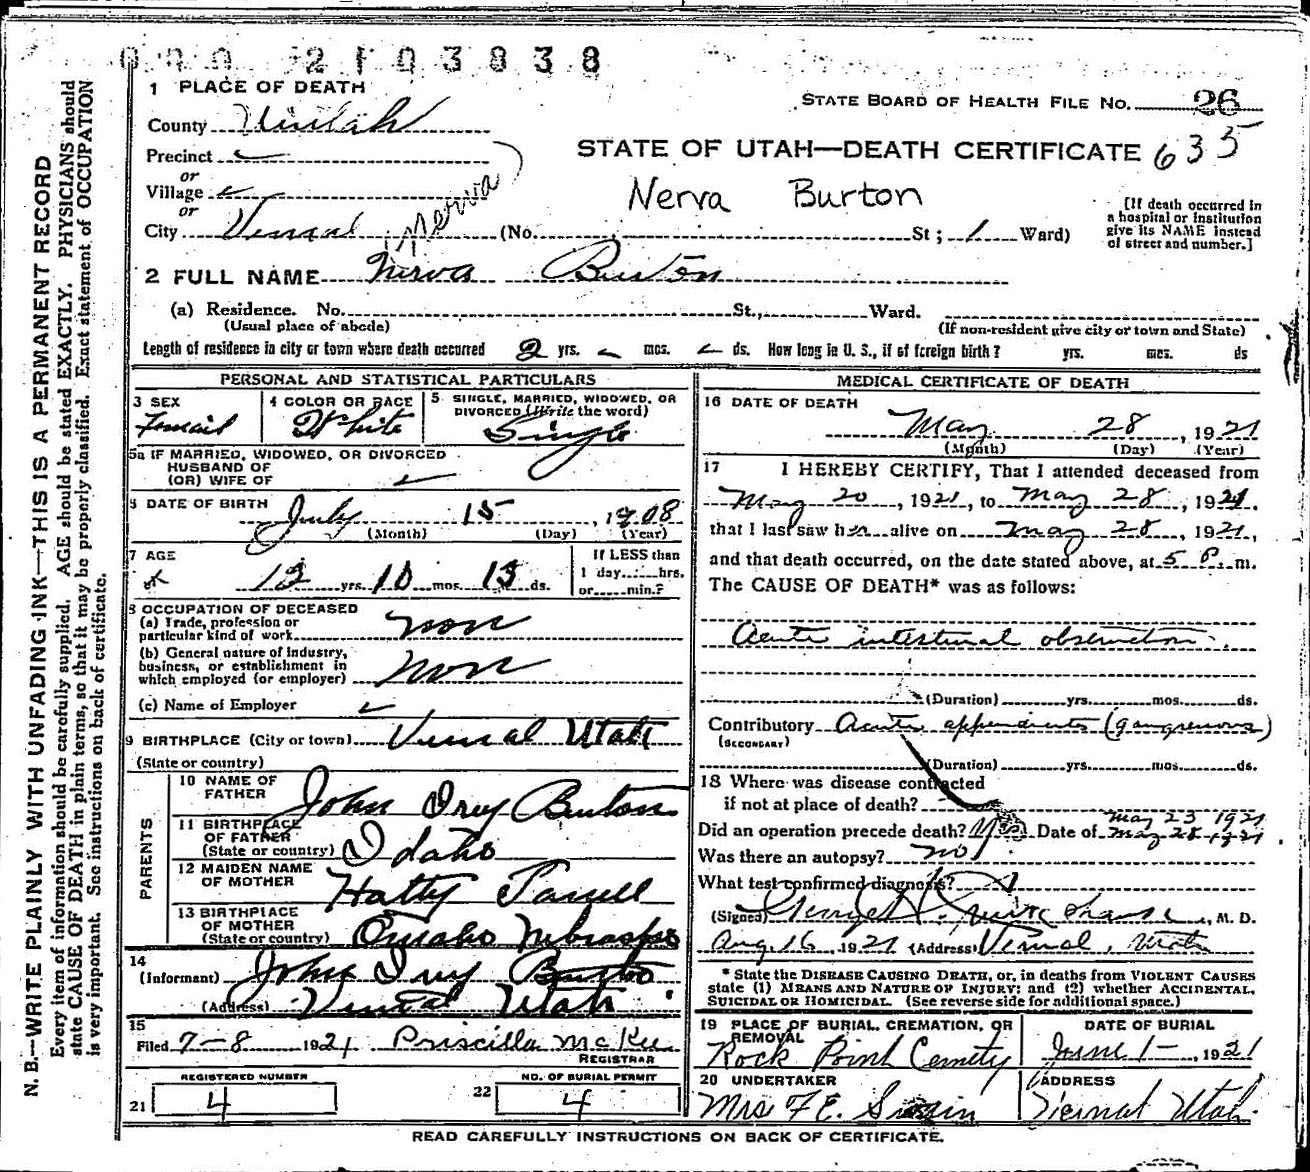 000 2103838
1 PLACE OF DEATH
STATE BOARD OF HEALTH FILE No. 26
County Uintah
635
Precinct
STATE OF UTAH—DEATH CERTIFICATE
or
Village
Nerva Burton
[If death occurred in a hospital or institution give its NAME instead of street and number.]
or
City Vernal (No. St; 1 Ward)
Nerva
2 FULL NAME Nerva Burton
(a) Residence. No. St., Ward.
(Usual place of abode) (If non-resident give city or town and State)
Length of residence in city or town where death occurred 2 yrs. mos. ds. How long in U. S., if of foreign birth? yrs. mos. ds
PERSONAL AND STATISTICAL PARTICULARS
3 SEX Femail
4 COLOR OR RACE White
5 SINGLE, MARRIED, WIDOWED, OR DIVORCED (Write the word) Single
5a IF MARRIED, WIDOWED, OR DIVORCED
HUSBAND OF
(OR) WIFE OF
6 DATE OF BIRTH
July 15, 1908
(Month) (Day) (Year)
7 AGE
12 yrs. 10 mos. 13 ds.
If LESS than
1 day...hrs.
or...min.?
8 OCCUPATION OF DECEASED
(a) Trade, profession or
particular kind of work non
(b) General nature of industry,
business, or establishment in
which employed (or employer) non
(c) Name of Employer
9 BIRTHPLACE (City or town) Vernal Utah
(State or country)
PARENTS
10 NAME OF
FATHER John Irey Burton
11 BIRTHPLACE
OF FATHER
(State or country) Idaho
12 MAIDEN NAME
OF MOTHER Hatty
13 BIRTHPLACE
OF MOTHER
(State or country) Omaho Nebraska
14
(Informant) John Irey Burton
(Address) Vernal Utah
15
Filed 7-8 1921 Priscilla McKee
REGISTRAR
REGISTERED NUMBER
21 4
NO. OF BURIAL PERMIT
22 4
MEDICAL CERTIFICATE OF DEATH
16 DATE OF DEATH
May 28, 1921
(Month) (Day) (Year)
17 I HEREBY CERTIFY, That I attended deceased from
May 20, 1921, to May 28, 1921.
that I last saw her alive on May 28, 1921,
and that death occurred, on the date stated above, at 5 P. m.
The CAUSE OF DEATH* was as follows:
Acute intestinal obstruction
(Duration) yrs. mos. ds.
Contributory Acute appendicitis (gangrenous)
(SECONDARY)
(Duration) yrs. mos. ds.
18 Where was disease contracted
if not at place of death?
May 23 1921
Did an operation precede death? Yes Date of May 28 1921
Was there an autopsy? no
What test confirmed diagnosis?
(Signed) , M. D.
Aug 16 1921 (Address) Vernal, Utah
* State the DISEASE CAUSING DEATH, or, in deaths from VIOLENT CAUSES
state (1) MEANS AND NATURE OF INJURY; and (2) whether ACCIDENTAL,
SUICIDAL OR HOMICIDAL. (See reverse side for additional space.)
19 PLACE OF BURIAL, CREMATION, OR
REMOVAL
Rock Point Cemety
DATE OF BURIAL
June 1 —, 1921
20 UNDERTAKER
Mrs F E.
ADDRESS
Vernal Utah
READ CAREFULLY INSTRUCTIONS ON BACK OF CERTIFICATE.
N. B.—WRITE PLAINLY WITH UNFADING INK—THIS IS A PERMANENT RECORD
Every item of information should be carefully supplied. AGE should be stated EXACTLY. PHYSICIANS should
state CAUSE OF DEATH in plain terms, so that it may be properly classified. Exact statement of OCCUPATION
is very important. See instructions on back of certificate.